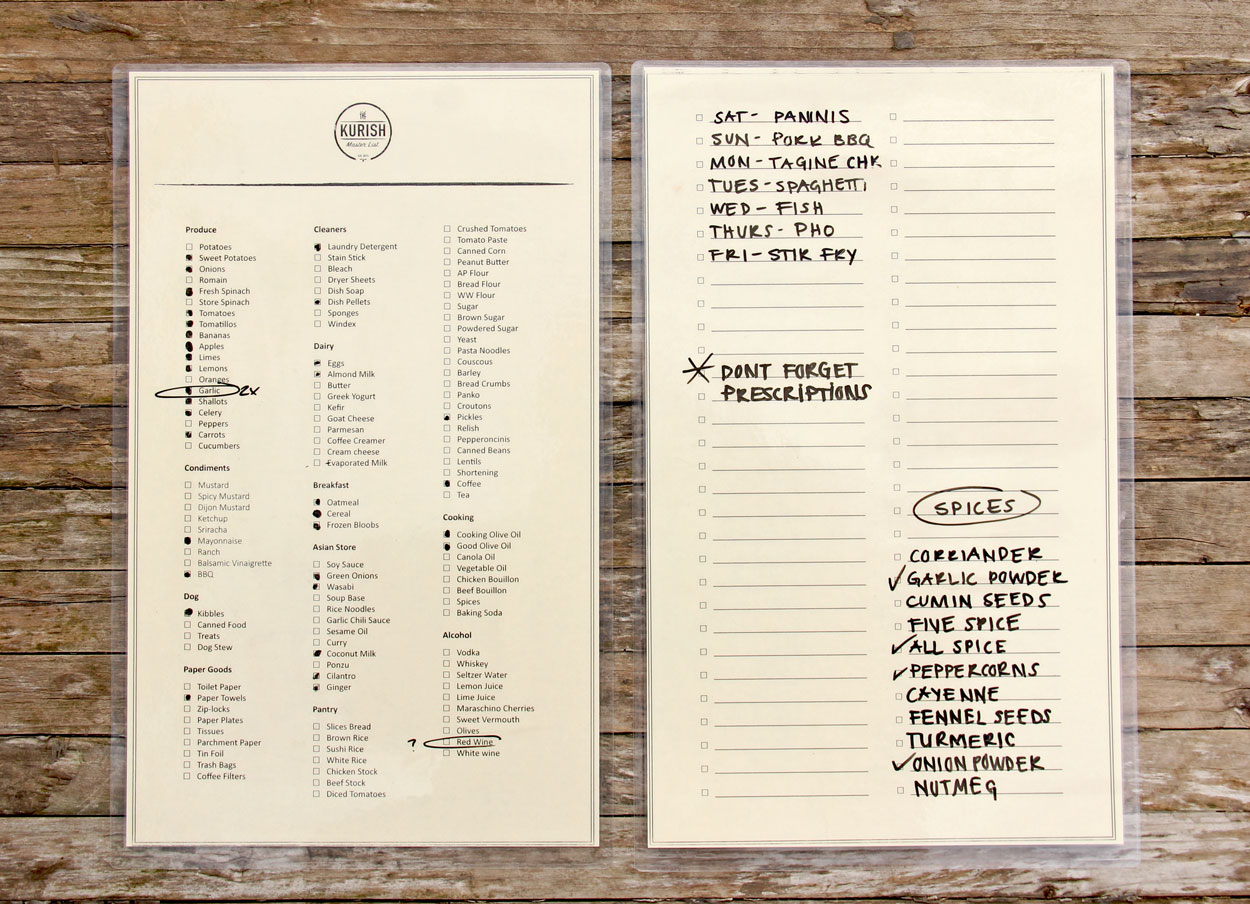 THE
KURISH
Master List
Produce
Potatoes
Sweet Potatoes
Onions
Romain
Fresh Spinach
Store Spinach
Tomatoes
Tomatillos
Bananas
Apples
Limes
Lemons
Oranges
Garlic 2x
Shallots
Celery
Peppers
Carrots
Cucumbers
Condiments
Mustard
Spicy Mustard
Dijon Mustard
Ketchup
Sriracha
Mayonnaise
Ranch
Balsamic Vinaigrette
BBQ
Dog
Kibbles
Canned Food
Treats
Dog Stew
Paper Goods
Toilet Paper
Paper Towels
Zip-locks
Paper Plates
Tissues
Parchment Paper
Tin Foil
Trash Bags
Coffee Filters
Cleaners
Laundry Detergent
Stain Stick
Bleach
Dryer Sheets
Dish Soap
Dish Pellets
Sponges
Windex
Dairy
Eggs
Almond Milk
Butter
Greek Yogurt
Kefir
Goat Cheese
Parmesan
Coffee Creamer
Cream cheese
Evaporated Milk
Breakfast
Oatmeal
Cereal
Frozen Bloobs
Asian Store
Soy Sauce
Green Onions
Wasabi
Soup Base
Rice Noodles
Garlic Chili Sauce
Sesame Oil
Curry
Coconut Milk
Ponzu
Cilantro
Ginger
Pantry
Slices Bread
Brown Rice
Sushi Rice
White Rice
Chicken Stock
Beef Stock
Diced Tomatoes
Crushed Tomatoes
Tomato Paste
Canned Corn
Peanut Butter
AP Flour
Bread Flour
WW Flour
Sugar
Brown Sugar
Powdered Sugar
Yeast
Pasta Noodles
Couscous
Barley
Bread Crumbs
Panko
Croutons
Pickles
Relish
Pepperoncinis
Canned Beans
Lentils
Shortening
Coffee
Tea
Cooking
Cooking Olive Oil
Good Olive Oil
Canola Oil
Vegetable Oil
Chicken Bouillon
Beef Bouillon
Spices
Baking Soda
Alcohol
Vodka
Whiskey
Seltzer Water
Lemon Juice
Lime Juice
Maraschino Cherries
Sweet Vermouth
Olives
? Red Wine
White wine
SAT - PANINIS
SUN - PORK BBQ
MON - TAGINE CHK
TUES - SPAGHETTI
WED - FISH
THURS - PHO
FRI - STIR FRY
DONT FORGET
PRESCRIPTIONS
SPICES
CORRIANDER
GARLIC POWDER
CUMIN SEEDS
FIVE SPICE
ALL SPICE
PEPPERCORNS
CAYENNE
FENNEL SEEDS
TURMERIC
ONION POWDER
NUTMEG